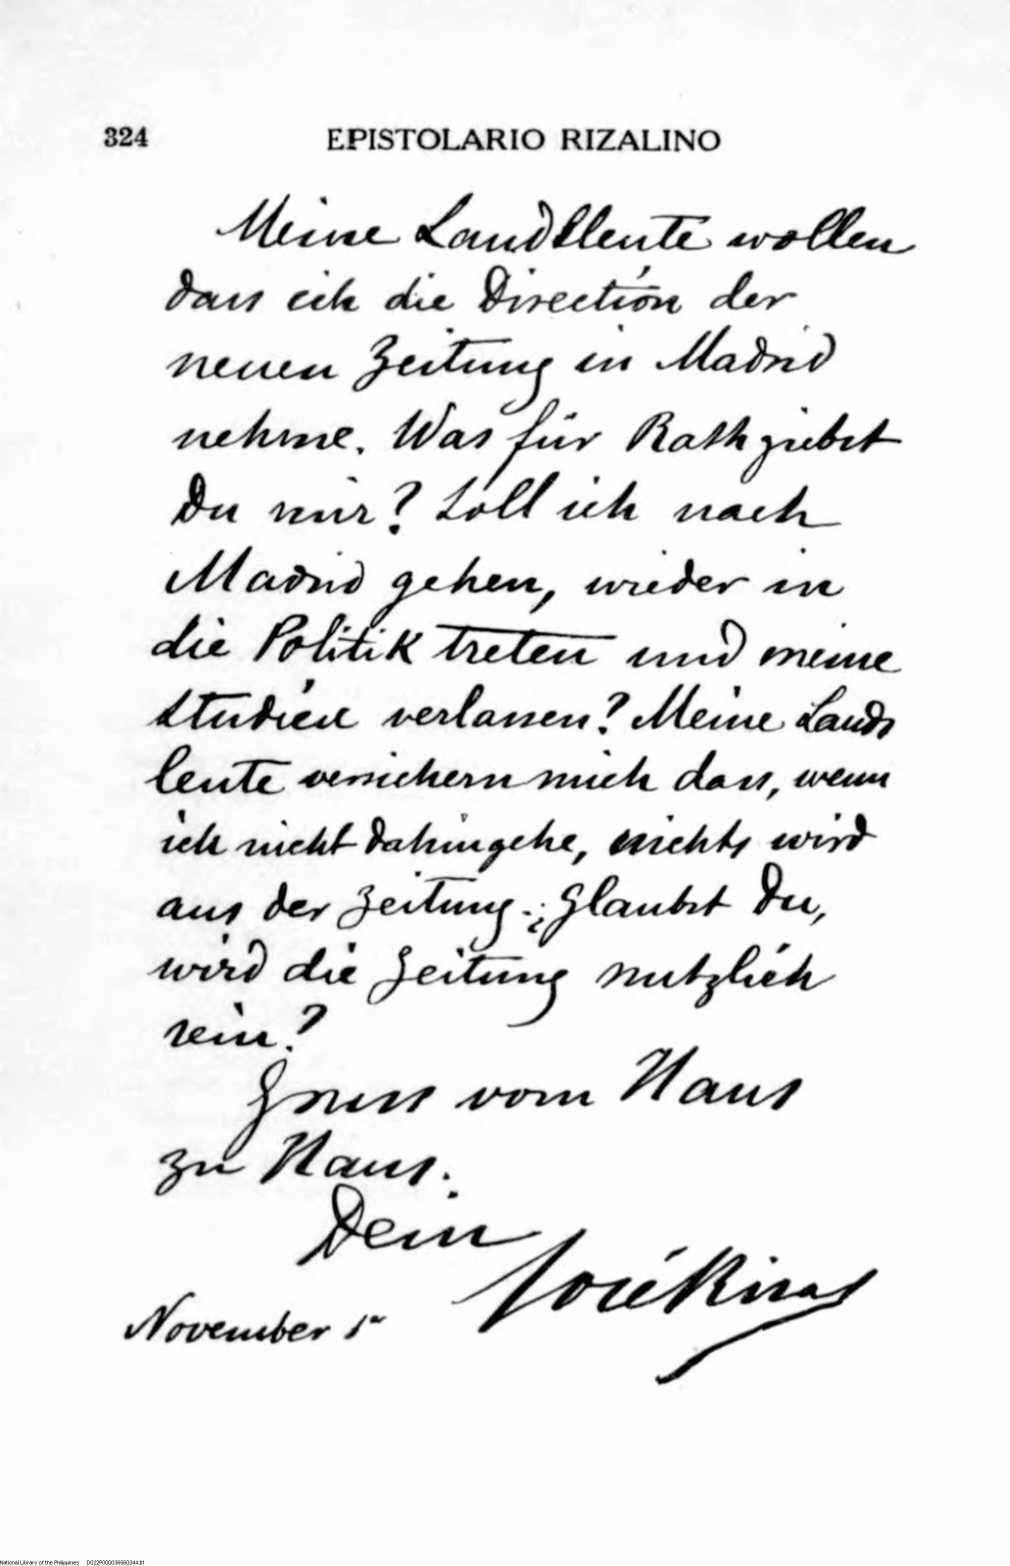 324 EPISTOLARIO RIZALINO
Meine Landsleute wollen
dass ich die Directión der
neuen Zeitung in Madrid
nehme. Was für Rath giebst
Du mir? Soll ich nach
Madrid gehen, wieder in
die Politik treten und meine
Studien verlassen? Meine Lands
leute versichern mich dass, wenn
ich nicht dahingehe, nichts wird
aus der Zeitung. ¿Glaubst Du,
wird die Zeitung nutzlich
sein?
Gruss vom Haus
zu Haus.
Dein
José Rizal
November 1º
National Library of the Philippines